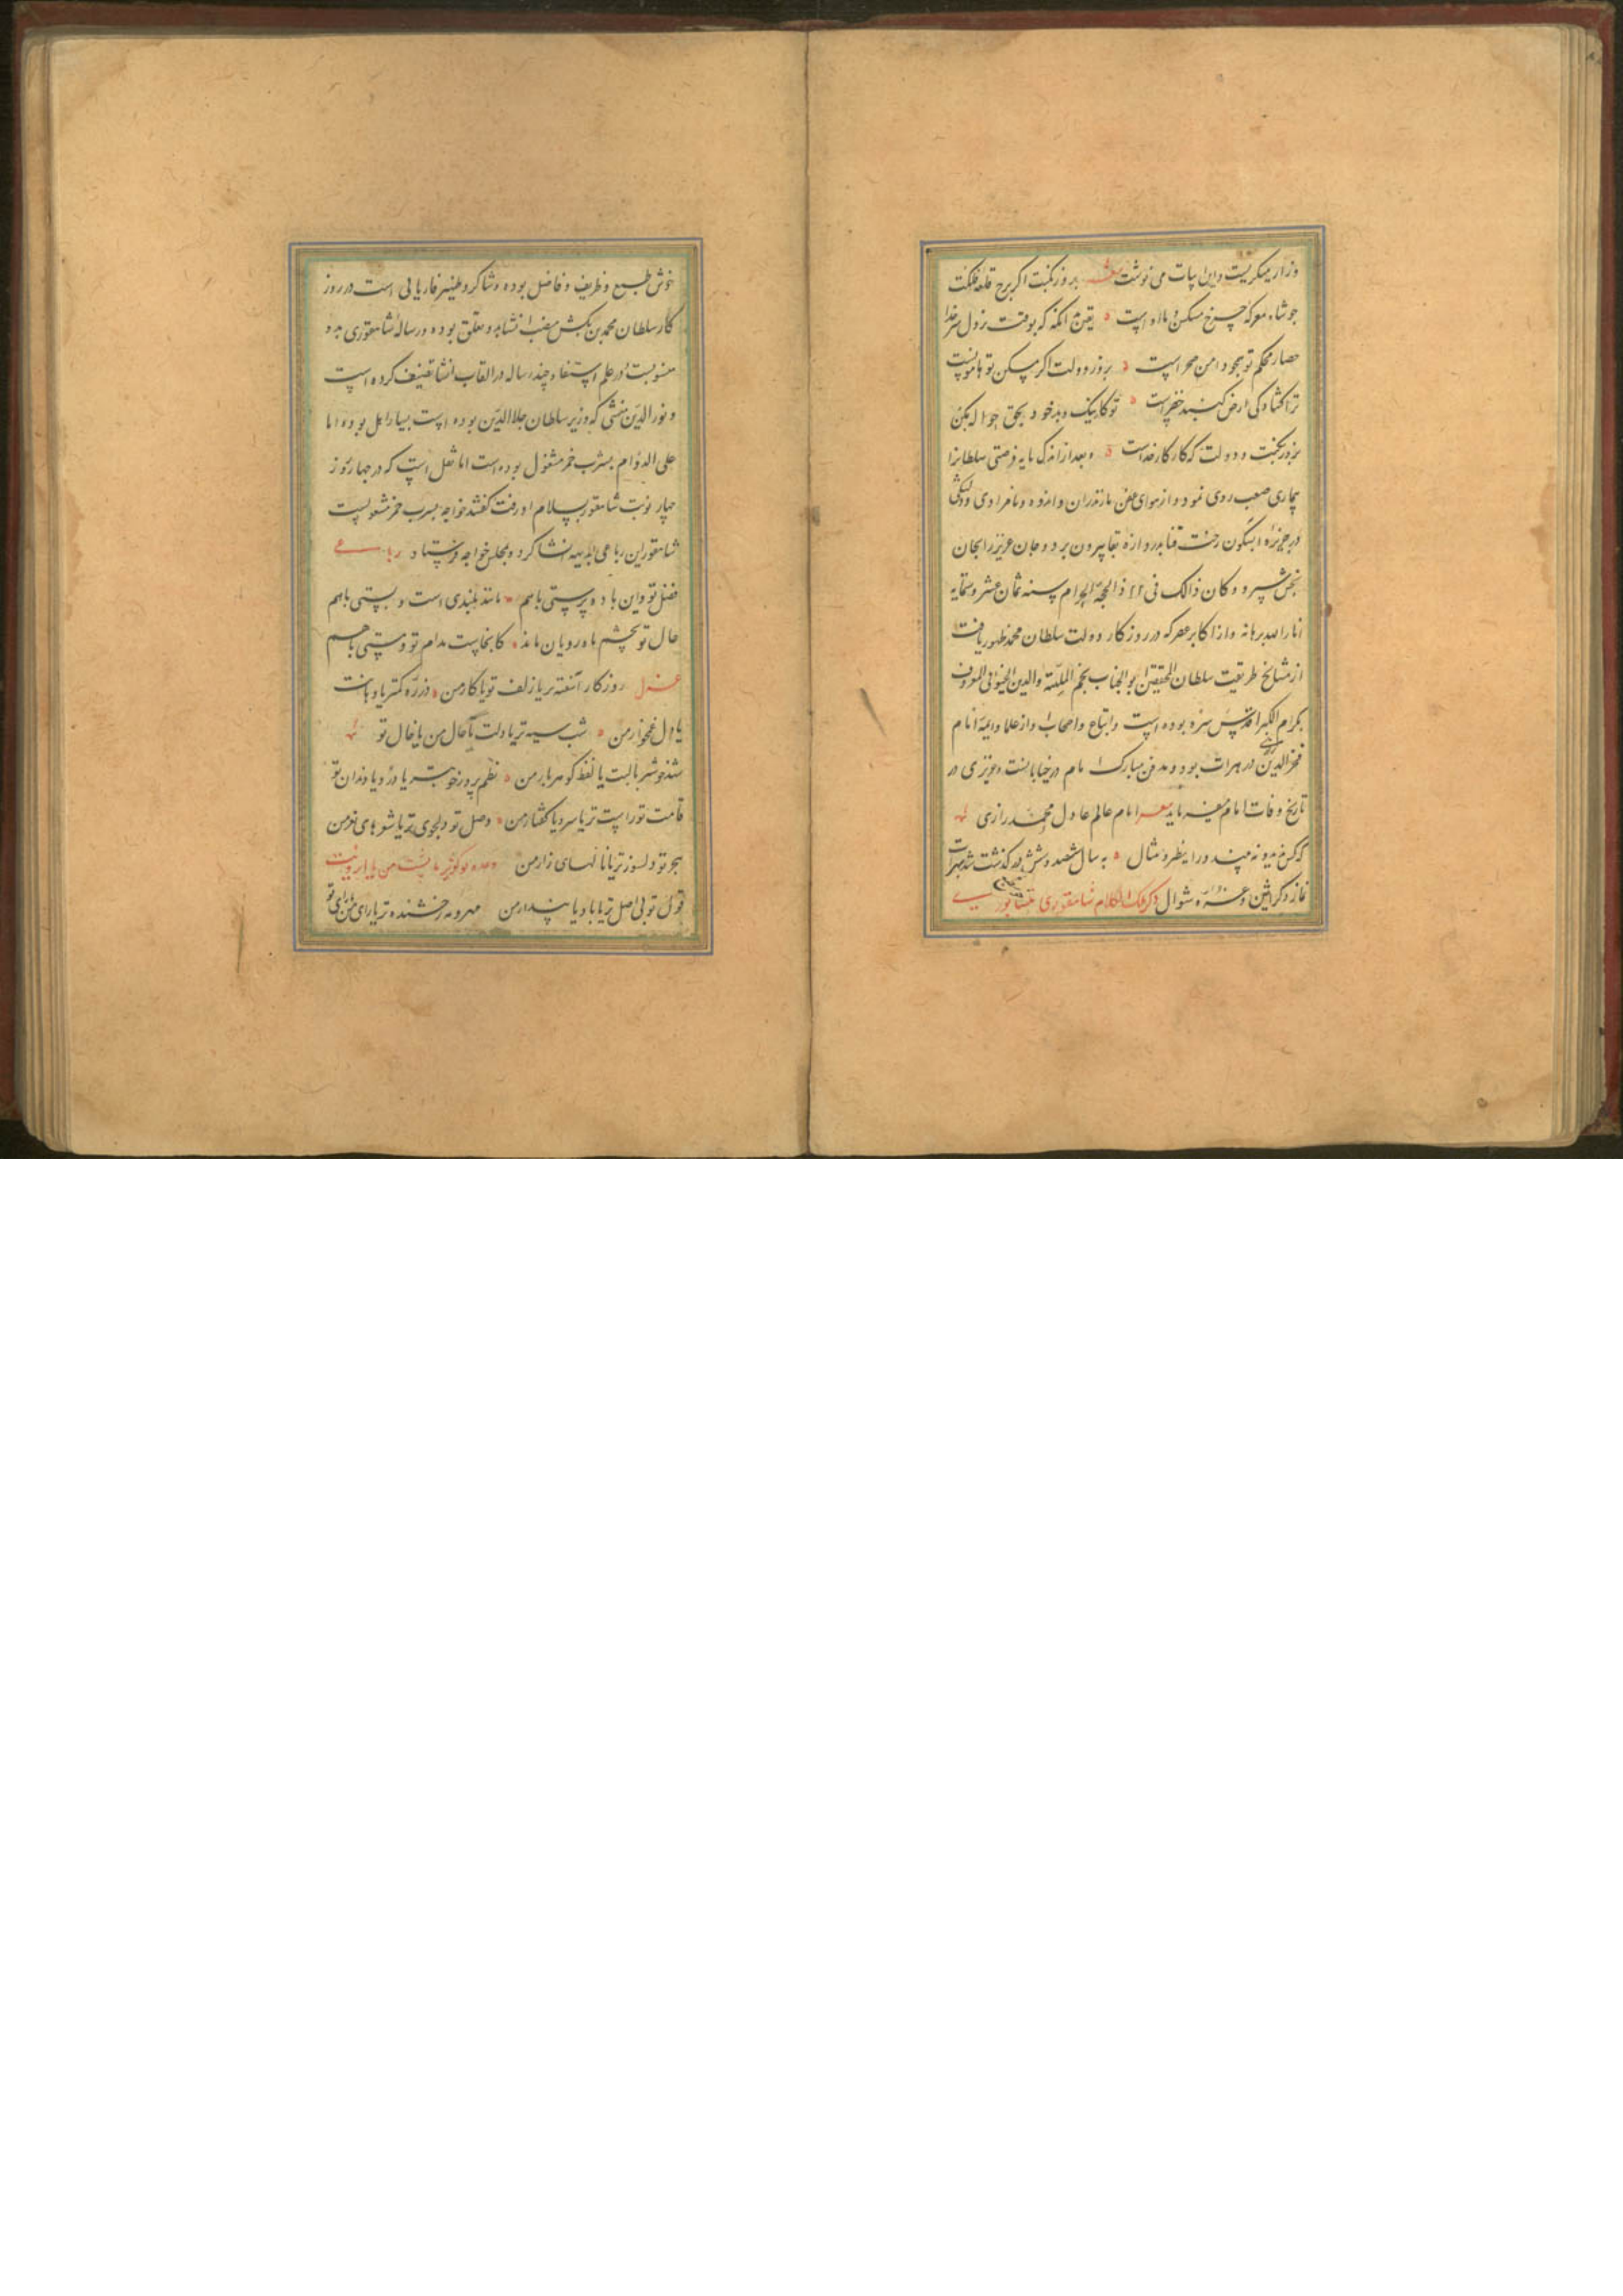 و زار میکریست و این ابیات می نوشت شعر بروز نکبت اکر برج قلعه فلکت
جو شاه معرکه چرخ مسکن و ماواست یقین بدانکه که بوقت نزول
حصار محکم تو بمجو دامن صحراست بروز دولت اکر مسکن تو هامونست
ترا کشادکی ارض کنبد خضراست تو کار نیک و بد خود بحق حواله بکن
بروز نکبت و دولت که کار کار خداست و بعد از اندک مایه فرصتی سلطانرا
بیماری صعب روی نمود و از هوای عفن مازندران و اندوه و نامرادی و دلتنکی
در جزیره ابسکون رخت فنا بدروازه بقا بیرون برد و جان عزیز را بجان
بخش سپرد و کان ذالک فی ٢٢ ذالحجة الحرام سنه ثمان عشر و ستمایه
انار الله برهانه و از اکابر عصر که در روزکار دولت سلطان محمد ظهور یافت
از مشایخ طریقت سلطان المحققین ابو الجناب نجم الملة والدین الخیوقی المعروف
بکرام الکبرا قدس سره بوده است و اتباع و اصحاب او از علما و ایمه انام
فخر الدین رازی در هرات بود و مدفن مبارک امام در خیابانست و عزیزی در
تاریخ وفات امام میفرماید شعر امام عالم عادل محمد رازی
که کس ندید و نه بیند ورا نظیر و مثال به سال ششصد و شش در کذشت شد بهرات
نماز دکر اثنین و غره شوال ذکر ملک الکلام شاهفوری نیشابوری
خوش طبع و ظریف و فاضل بوده و شاکرد ظهیر فاریابی است در روز
کار سلطان محمد بن تکش منصب انشا بدو متعلق بوده و رساله شاهفوری بدو
منسوبست در علم استیفا و چند رساله در القاب انشا تصنیف کرده است
و نور الدین منشی که وزیر سلطان جلال الدین بوده است بسیار اهل بوده اما
علی الدوام بشرب خمر مشغول بوده است اما نقل است که در چهار روز
چهار نوبت شاهفور بسلام او رفت کفتند خواجه بشرب خمر مشغولست
شاهفور این رباعی بالبدیهه انشا کرد و بمجلس خواجه فرستاد رباعی
فضل تو و این باده پرستی باهم مانند بلندی است و پستی باهم
حال تو بچشم ماهرویان ماند کانجاست مدام تو و مستی باهم
غزل روزکار آشفته تر یا زلف تو یا کار من ذره کمتر یا دهانت
یا دل غمخوار من شب سیه تر یا دلت یا حال من یا خال تو
شهد خوشتر یا لبت یا لفظ کوهربار من نظم پروین خوبتر یا در و یا دندان تو
قامت تو راست تر یا سرو یا کفتار من وصل تو دلجوی تر یا شعرهای نغز من
هجر تو دلسوز تر یا نالهای زار من
قول تو بی اصل تر یا باد یا پندار من مهر و مه رخشنده تر یا رای من یا روی تو